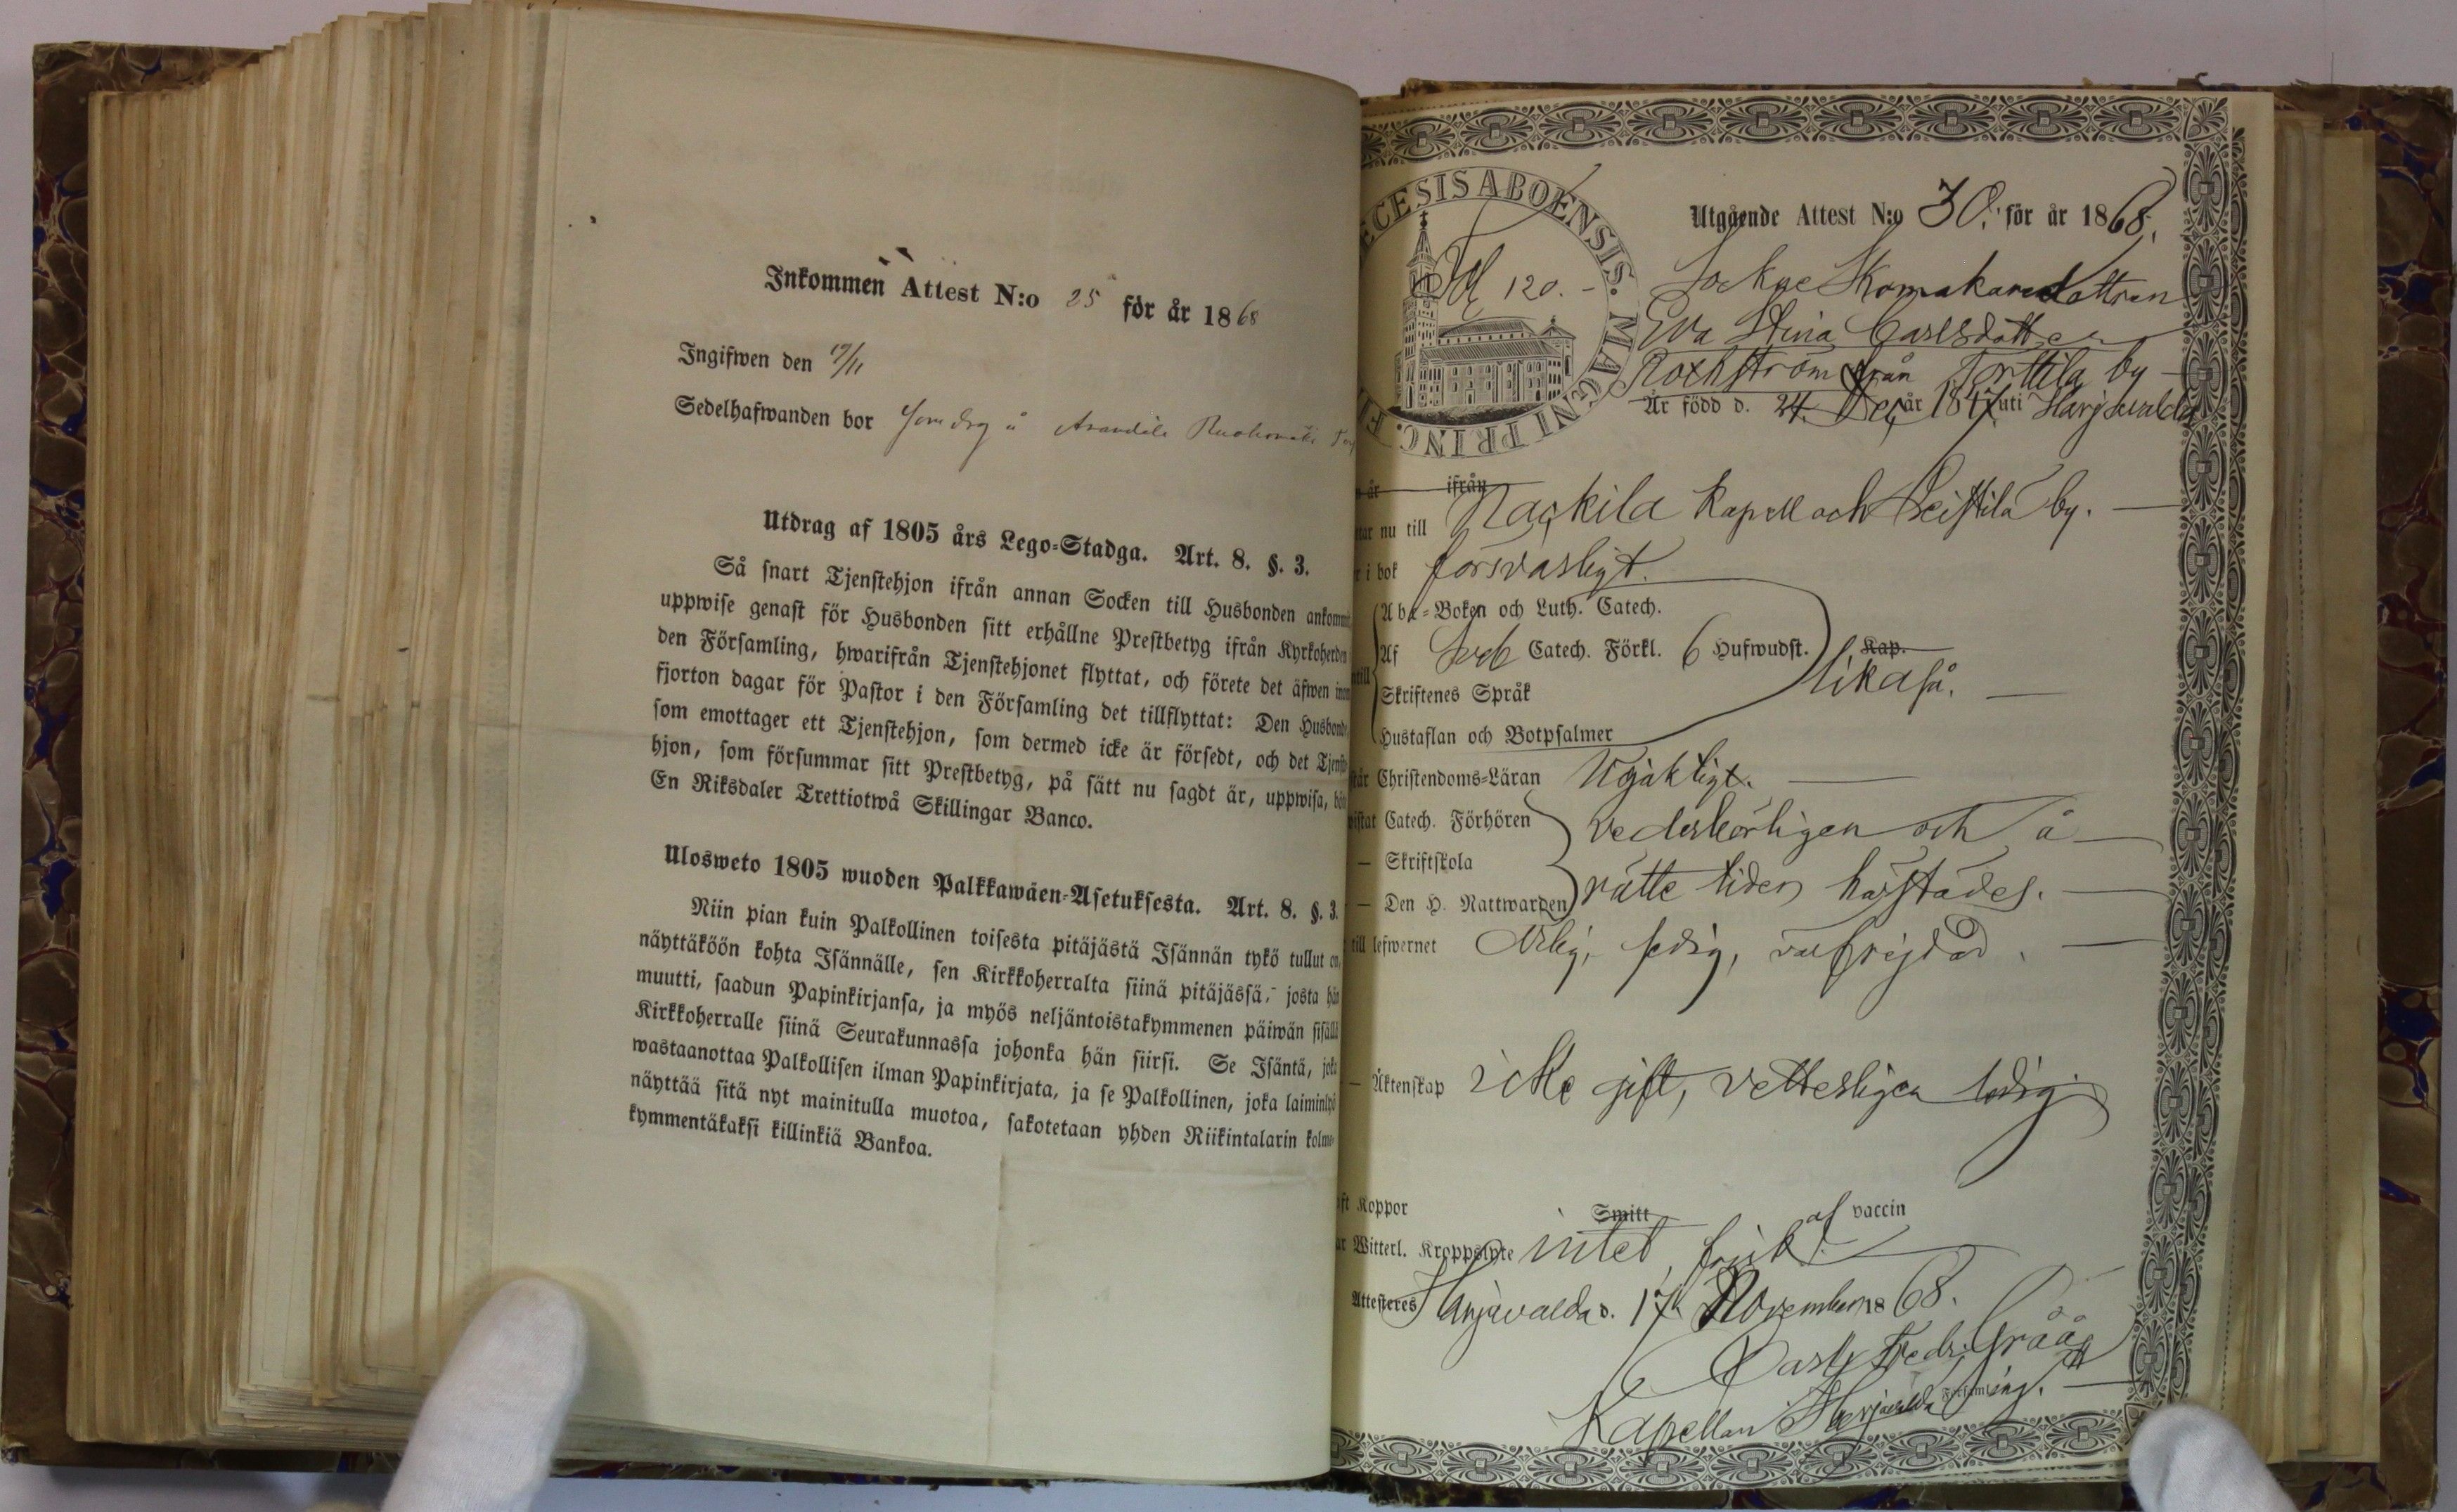 Inkommen Attest N:o 25 för år 1868
Ingifwen den 17/11
Sedelhafwanden bor
Utdrag af 1805 års Lego-Stadga. Art. 8. §. 3.
Så snart Tjenstehjon ifrån annan Socken till Husbonden ankomm
uppwise genast för Husbonden sitt erhållne Prestbetyg ifrån Kyrkoherden
den Församling, hwarifrån Tjenstehjonet flyttat, och förete det äfwen inom
fjorton dagar för Pastor i den Församling det tillflyttat: Den Husbonde
som emottager ett Tjenstehjon, som dermed icke är försedt, och det Tjenste
hjon, som försummar sitt Prestbetyg, på sätt nu sagdt är, uppwisa, böt
En Riksdaler Trettiotwå Skillingar Banco.
Ulosweto 1805 wuoden Palkkawäen-Asetuksesta. Art. 8. §. 3.
Niin pian kuin Palkollinen toisesta pitäjästä Isännän tykö tullut on,
näyttäköön kohta Isännälle, sen Kirkkoherralta siinä pitäjässä, josta hän
muutti, saadun Papinkirjansa, ja myös neljäntoistakymmenen päiwän sisällä
Kirkkoherralle siinä Seurakunnassa johonka hän siirsi. Se Isäntä, joka
wastaanottaa Palkollisen ilman Papinkirjata, ja se Palkollinen, joka laiminlyö
näyttää sitä nyt mainitulla muotoa, sakotetaan yhden Riikintalarin kolme-
kymmentäkaksi killinkiä Bankoa.
CESIS ABOENSIS. MAGNI PRINC. FI
120.
Utgående Attest N:o 30. för år 1868.
Sockne Skomakaredottren
Eva Stina Carlsdotter
Roxhström från Torttila by
Är född d. 24 Dec år 1847 uti Harjavalda
år ifrån
tar nu till Nackila Kapell och Leistilä by.
r i bok försvarligt.
Abc-Boken och Luth. Catech.
Af Sveb Catech. Förkl. 6 Hufwudst. Kap.
likaså.
Skriftenes Språk
Hustaflan och Botpsalmer
står Christendoms-Läran Nöjaktigt.
wistat Catech. Förhören vederbörligen och å
— Skriftskola
— Den H. Nattwarden rätte tider härstädes.
till lefwernet Ärlig, sedig, välfrejdad.
— Äktenskap icke gift, vetterligen ledig.
ft Koppor Smitt af vaccin
ar Witterl. Kroppslyte intet, frisk.
Attesteres Harjavalda d. 17 November 1868.
Carl Fredr. Gråå
Kapellan i Harjavalda Församling.